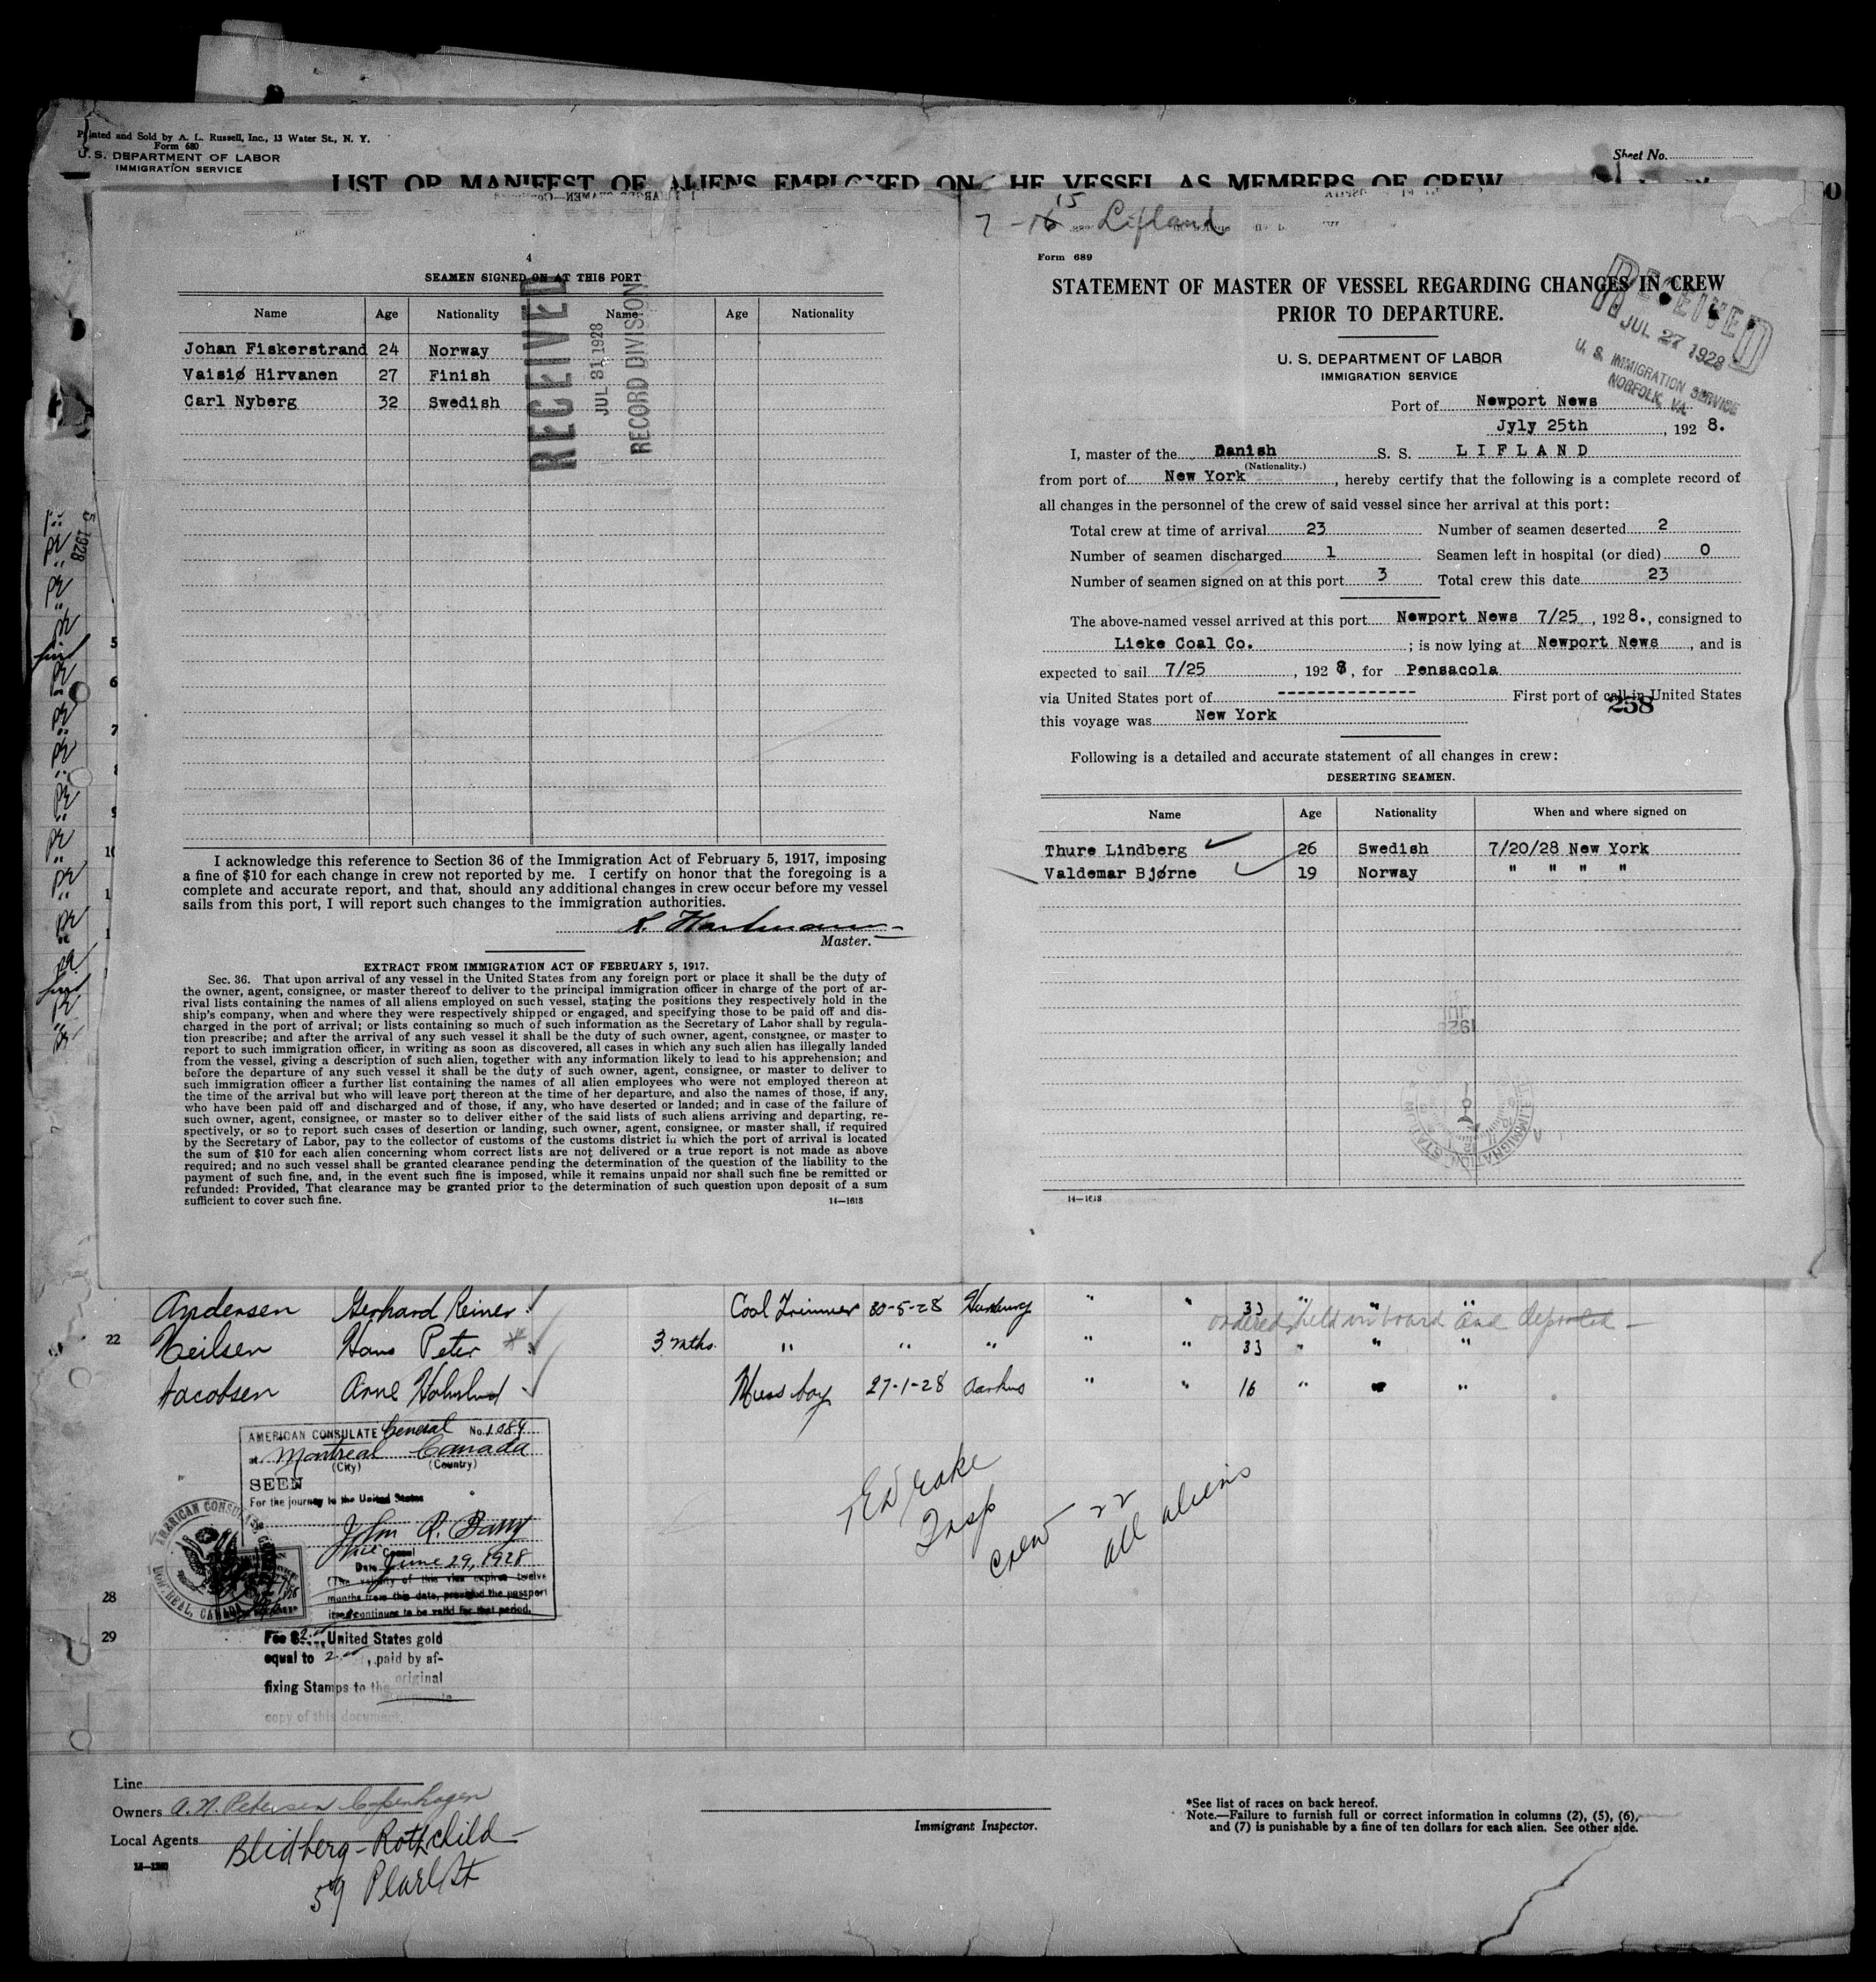 Printed and Sold by A. L. Russell, Inc., 13 Water St., N. Y.
Form 680
U. S. DEPARTMENT OF LABOR
IMMIGRATION SERVICE
Sheet No.
LIST OR MANIFEST OF ALIENS EMPLOYED ON THE VESSEL AS MEMBERS OF CREW
4
SEAMEN SIGNED ON AT THIS PORT
Name Age Nationality Name Age Nationality
Johan Fiskerstrand 24 Norway
Vaisiø Hirvanen 27 Finish
Carl Nyberg 32 Swedish
RECEIVED
JUL 31 1928
RECORD DIVISION
I acknowledge this reference to Section 36 of the Immigration Act of February 5, 1917, imposing
a fine of $10 for each change in crew not reported by me. I certify on honor that the foregoing is a
complete and accurate report, and that, should any additional changes in crew occur before my vessel
sails from this port, I will report such changes to the immigration authorities.
Master.
EXTRACT FROM IMMIGRATION ACT OF FEBRUARY 5, 1917.
Sec. 36. That upon arrival of any vessel in the United States from any foreign port or place it shall be the duty of
the owner, agent, consignee, or master thereof to deliver to the principal immigration officer in charge of the port of ar-
rival lists containing the names of all aliens employed on such vessel, stating the positions they respectively hold in the
ship's company, when and where they were respectively shipped or engaged, and specifying those to be paid off and dis-
charged in the port of arrival; or lists containing so much of such information as the Secretary of Labor shall by regula-
tion prescribe; and after the arrival of any such vessel it shall be the duty of such owner, agent, consignee, or master to
report to such immigration officer, in writing as soon as discovered, all cases in which any such alien has illegally landed
from the vessel, giving a description of such alien, together with any information likely to lead to his apprehension; and
before the departure of any such vessel it shall be the duty of such owner, agent, consignee, or master to deliver to
such immigration officer a further list containing the names of all alien employees who were not employed thereon at
the time of the arrival but who will leave port thereon at the time of her departure, and also the names of those, if any,
who have been paid off and discharged and of those, if any, who have deserted or landed; and in case of the failure of
such owner, agent, consignee, or master so to deliver either of the said lists of such aliens arriving and departing, re-
spectively, or so to report such cases of desertion or landing, such owner, agent, consignee, or master shall, if required
by the Secretary of Labor, pay to the collector of customs of the customs district in which the port of arrival is located
the sum of $10 for each alien concerning whom correct lists are not delivered or a true report is not made as above
required; and no such vessel shall be granted clearance pending the determination of the question of the liability to the
payment of such fine, and, in the event such fine is imposed, while it remains unpaid nor shall such fine be remitted or
refunded: Provided, That clearance may be granted prior to the determination of such question upon deposit of a sum
sufficient to cover such fine.
14—1613
Lifland
Form 689
STATEMENT OF MASTER OF VESSEL REGARDING CHANGES IN CREW
PRIOR TO DEPARTURE.
U. S. DEPARTMENT OF LABOR
IMMIGRATION SERVICE
RECEIVED
JUL 27 1928
U. S. IMMIGRATION SERVICE
NORFOLK, VA.
Port of Newport News
Jyly 25th, 1928.
I, master of the Danish S. S. LIFLAND
(Nationality.)
from port of New York, hereby certify that the following is a complete record of
all changes in the personnel of the crew of said vessel since her arrival at this port:
Total crew at time of arrival 23 Number of seamen deserted 2
Number of seamen discharged 1 Seamen left in hospital (or died) 0
Number of seamen signed on at this port 3 Total crew this date 23
The above-named vessel arrived at this port Newport News 7/25, 1928., consigned to
Lieke Coal Co.; is now lying at Newport News, and is
expected to sail 7/25, 1928, for Pensacola
via United States port of -------------- First port of call in United States
258
this voyage was New York
Following is a detailed and accurate statement of all changes in crew:
DESERTING SEAMEN.
Name Age Nationality When and where signed on
Thure Lindberg 26 Swedish 7/20/28 New York
Valdemar Bjørne 19 Norway " " " "
14—1613
Andersen Gerhard Reiner Coal Trimmer 30-5-28 Hamburg " " 33 " " "
ordered held on board and deported
22 Neilsen Hans Peter 3 mths. " " " " " 33 " " "
Jacobsen Arne Mess boy 27-1-28 Aarhus " " 16 " " "
AMERICAN CONSULATE General No. 1084
at Montreal Canada
(City) (Country)
SEEN
For the journey to the United States
John R. Barry
Vice Consul
Date June 29, 1928
(The validity of this visa expires twelve
months from this date, provided the passport
itself continues to be valid for that period.
AMERICAN CONSULATE GENERAL
MONTREAL, CANADA
Fee $2.00 United States gold
equal to 2.00, paid by af-
fixing Stamps to the original
copy of this document.
Insp
crew 22
all aliens
28
29
Line
Owners A. N. Petersen Copenhagen
Local Agents Blidberg-Rothchild
59 Pearl St
Immigrant Inspector.
*See list of races on back hereof.
Note.—Failure to furnish full or correct information in columns (2), (5), (6),
and (7) is punishable by a fine of ten dollars for each alien. See other side.